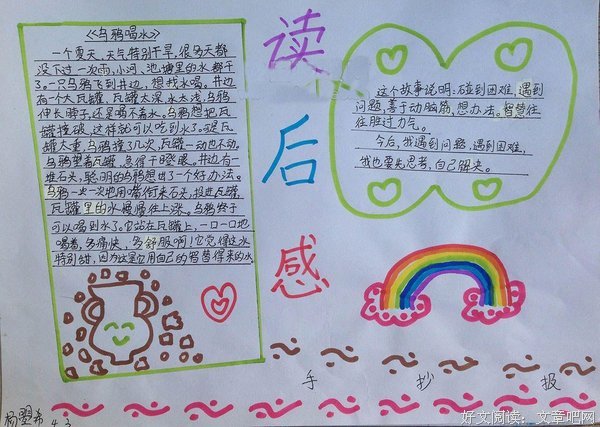 《乌鸦喝水》
一个夏天,天气特别干旱,很多天都
没下过一次雨,小河、池塘里的水都干
了。一只乌鸦飞到井边,想找水喝。井边
有一个大瓦罐,瓦罐太深,水太浅,乌鸦
伸长脖子,还是喝不着水。乌鸦想把瓦
罐撞破,这样就可以吃到水了。可是瓦
罐太重,乌鸦撞了几次,瓦罐一动也不动。
乌鸦望着瓦罐,急得干瞪眼。井边有一
堆石头,聪明的乌鸦想出了一个好办法。
乌鸦一次一次地用嘴衔来石头,投进瓦罐,
瓦罐里的水慢慢往上涨。乌鸦终于
可以喝到水了。它站在瓦罐上,一口一口地
喝着,多痛快,多舒服啊!它觉得这水
特别甜,因为这是它用自己的智慧得来的水
读
后
感
这个故事说明:碰到困难,遇到
问题,善于动脑筋,想办法。智慧往
往胜过力气。
今后,我遇到问题,遇到困难,
我也要先思考,自己解决。
手 抄 报
杨 希
4.3
好文阅读:文章吧网